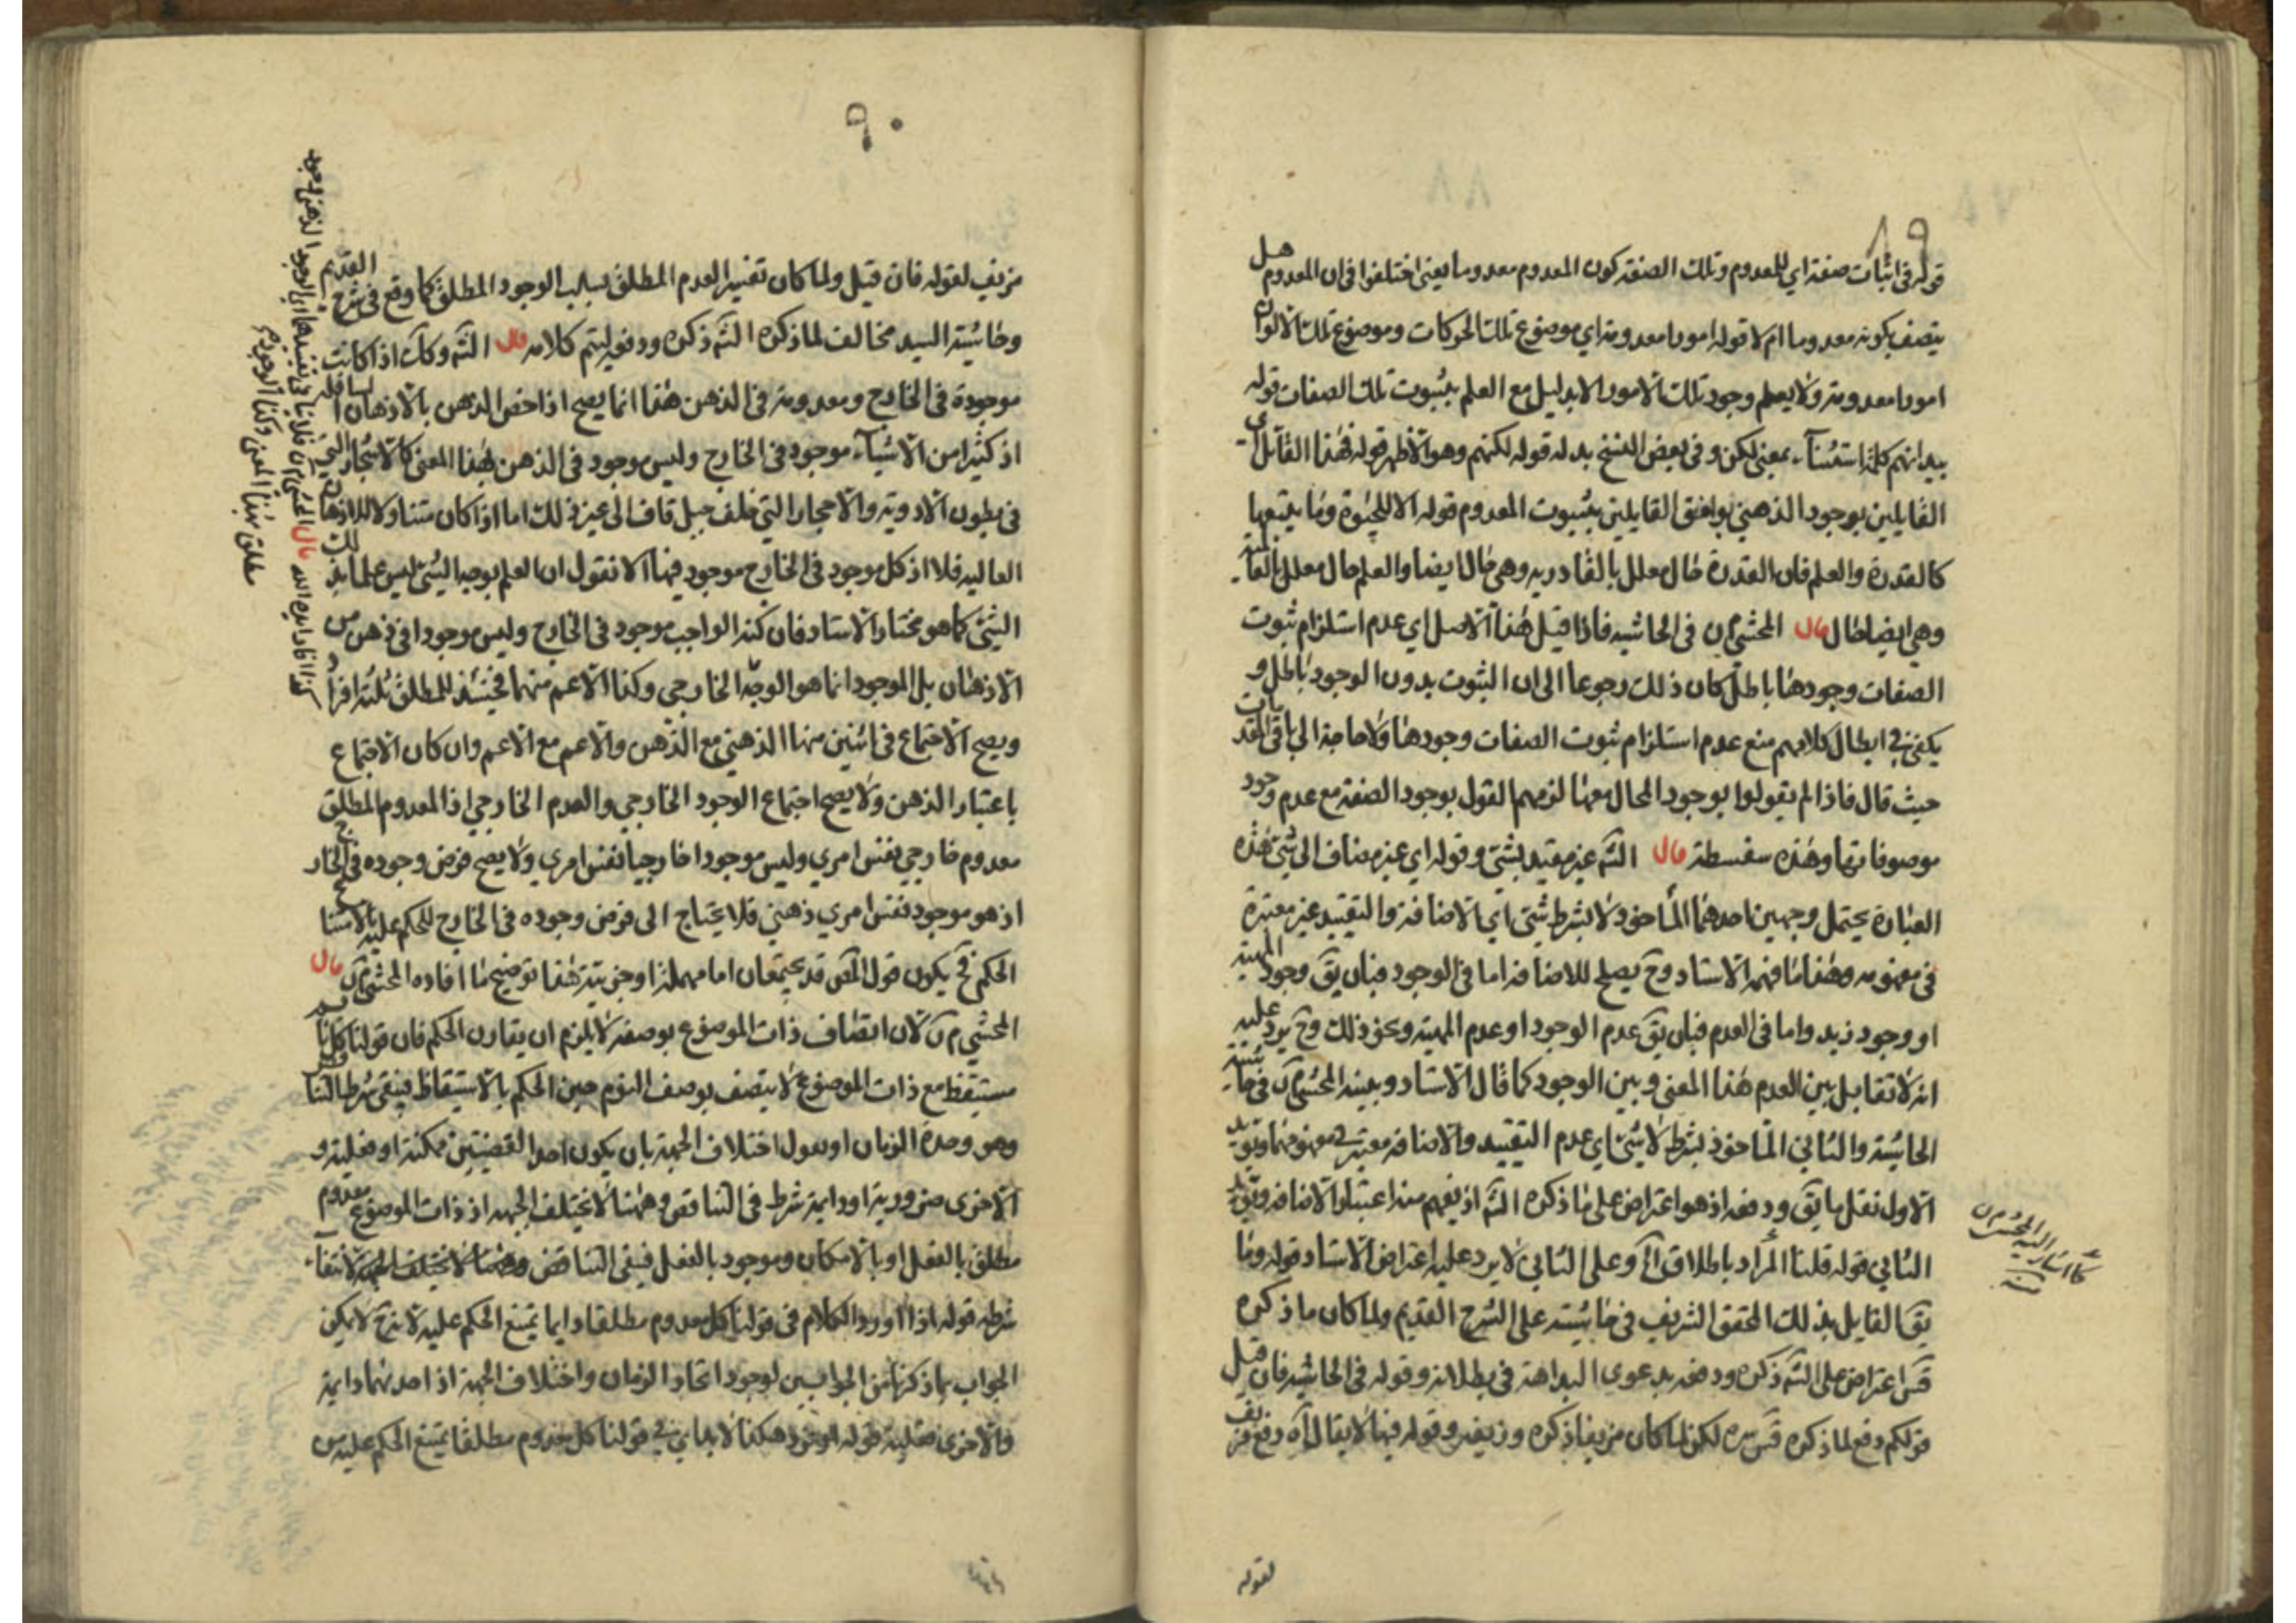 ٨٩
قوله في اثبات صفة اي للمعدوم وتلك الصفة كون المعدوم معدوما يعني اختلفوا في ان المعدوم هل
يتصف بكونه معدوما ام لا قوله امورا معدومة اي موضوع تلك الحركات وموضوع تلك الالوان
امورا معدومة ولا يعلم وجود تلك الامور الا بدليل مع العلم بثبوت تلك الصفات قوله
بيد انهم كلمة استثناء بمعنى لكن وفي بعض النسخ بدله قوله لكنهم وهو الاظهر قوله فهذا القائل اي
القايلين بوجود الذهني يوافق القايلين بثبوت المعدوم قوله الا للحيوة وما يتبعها
كالقدرة والعلم فان القدرة حال معلل بالقادرية وهي حال ايضا والعلم حال معلل بالعالمية
وهي ايضا حال قال المحشي م ن في الحاشيه فاذا قيل هذا الاصل اي عدم استلزام ثبوت
الصفات وجودها باطل كان ذلك رجوعا الى ان الثبوت بدون الوجود باطل و
يكفي في ابطال كلامهم منع عدم استلزام ثبوت الصفات وجودها ولا حاجة الى باقي المقدمات
حيث قال فاذا لم يقولوا بوجود المحال معها لزمهم القول بوجود الصفة مع عدم وجود
موصوفاتها وهذه سفسطة قال الش غير مقيد بشئ وقوله اي غير مضاف الى شئ هذه
العبارة يحتمل وجهين احدهما المأخوذ لا بشرط شئ اي الاضافة والتقييد غير معتبرة
في مفهومه وهذا ما فهمه الاستاد وح يصلح للاضافة اما في الوجود فبان يق وجود المهية
او وجود زيد واما في العدم فبان يق عدم الوجود او عدم المهية ونحو ذلك وح يرد عليه
انه لا تقابل بين العدم هذا المعنى وبين الوجود كما قال الاستاد وبينه المحشي م ن في حاشية
الحاشية والثاني المأخوذ بشرط لا شئ اي عدم التقييد والاضافه معتبر في مفهومها
الاول نقل ما يق ودفعه اذ هو اعتراض على ما ذكره الش اذ يفهم منه اعتبار الاضافه
الثاني قوله قلنا المراد باطلاق آه وعلى الثاني لا يرد عليه اعتراض الاستاد قوله وما
يق القايل بذلك المحقق الشريف في حاشيته على الشرح القديم ولما كان ما ذكره
قس اعتراض على الش ذكره ودفعه بدعوى البداهة في بطلانه وقوله في الحاشيه فان قيل
قولكم دفع لما ذكره قس سره لكن لما كان مزيفا ذكره وزيفه وقوله فيها لا يقال آه دفع مزيف
كما اشار اليه المحشي م ن
منه
لقوله
٩٠
مزيف لقوله فان قيل ولما كان تفسير العدم المطلق بسلب الوجود المطلق كما وقع في شرح القديم
وحاشية السيد مخالف لما ذكره الش ذكره ودفعه ليتم كلامه قال الش وكانت اذا كانت
موجودة في الخارج ومعدومة في الذهن هذا انما يصح اذا خص الذهن بالاذهان السافلة
اذ كثيرا من الاشياء موجود في الخارج وليس موجود في الذهن بهذا المعنى كالاشجار التي
في بطون الاودية والاحجار التي خلف جبل قاف الى غير ذلك اما اذا كان متناولا للاذهان
العاليه فلا اذ كل موجود في الخارج موجود فيها الا نقول ان العلم بوجه الشئ ليس علما بذلك
الشئ كما هو مختار الاستاد فان كنه الواجب موجود في الخارج وليس موجودا في ذهن من
الاذهان بل الموجود انما هو الوجه الخارجي وكذا الاعم منهما فحينئذ للمطلق ثلثة افراد
ويصح الاجتماع في اثنين منها الذهني مع الذهن والاعم مع الاعم وان كان الاجتماع
باعتبار الذهن ولا يصح اجتماع الوجود الخارجي والعدم الخارجي اذ المعدوم المطلق
معدوم خارجي نفس امري وليس موجودا خارجيا نفس امري ولا يصح فرض وجوده في الخارج
اذ هو موجود نفس امري ذهني فلا يحتاج الى فرض وجوده في الخارج للحكم عليه بامتناع
الحكم فح يكون قول المص قد يجتمعان اما مهملة او جزيية هذا توضيح ما افاده المحشي م ن قال
المحشي م ن لان اتصاف ذات الموضوع بوصفه لا يلزم ان يقارن الحكم فان قولنا كل نائم
مستيقظ مع ذات الموضوع لا يتصف بوصف النوم حين الحكم بالاستيقاظ فينتفي شرط التناقض
وهو وحدة الزمان او نقول اختلاف الجهة بان يكون احد القضيتين ممكنة او فعلية و
الاخرى ضرورية او دايمة شرط في التناقض وههنا لا يختلف الجهة اذ ذات الموضوع معدوم
مطلق بالفعل او بالامكان وموجود بالفعل فينتفي التناقض لانتفاء
شرطه قوله اذا اورد الكلام في قولنا كل معدوم مطلقا دايما يمتنع الحكم عليه لانه ح لا يمكن
الجواب بما ذكرنا من الجوابين لوجود اتحاد الزمان واختلاف الجهة اذ احدهما دايمة
والاخرى فعلية قوله هكذا في قولنا كل معدوم مطلقا يمتنع الحكم عليه